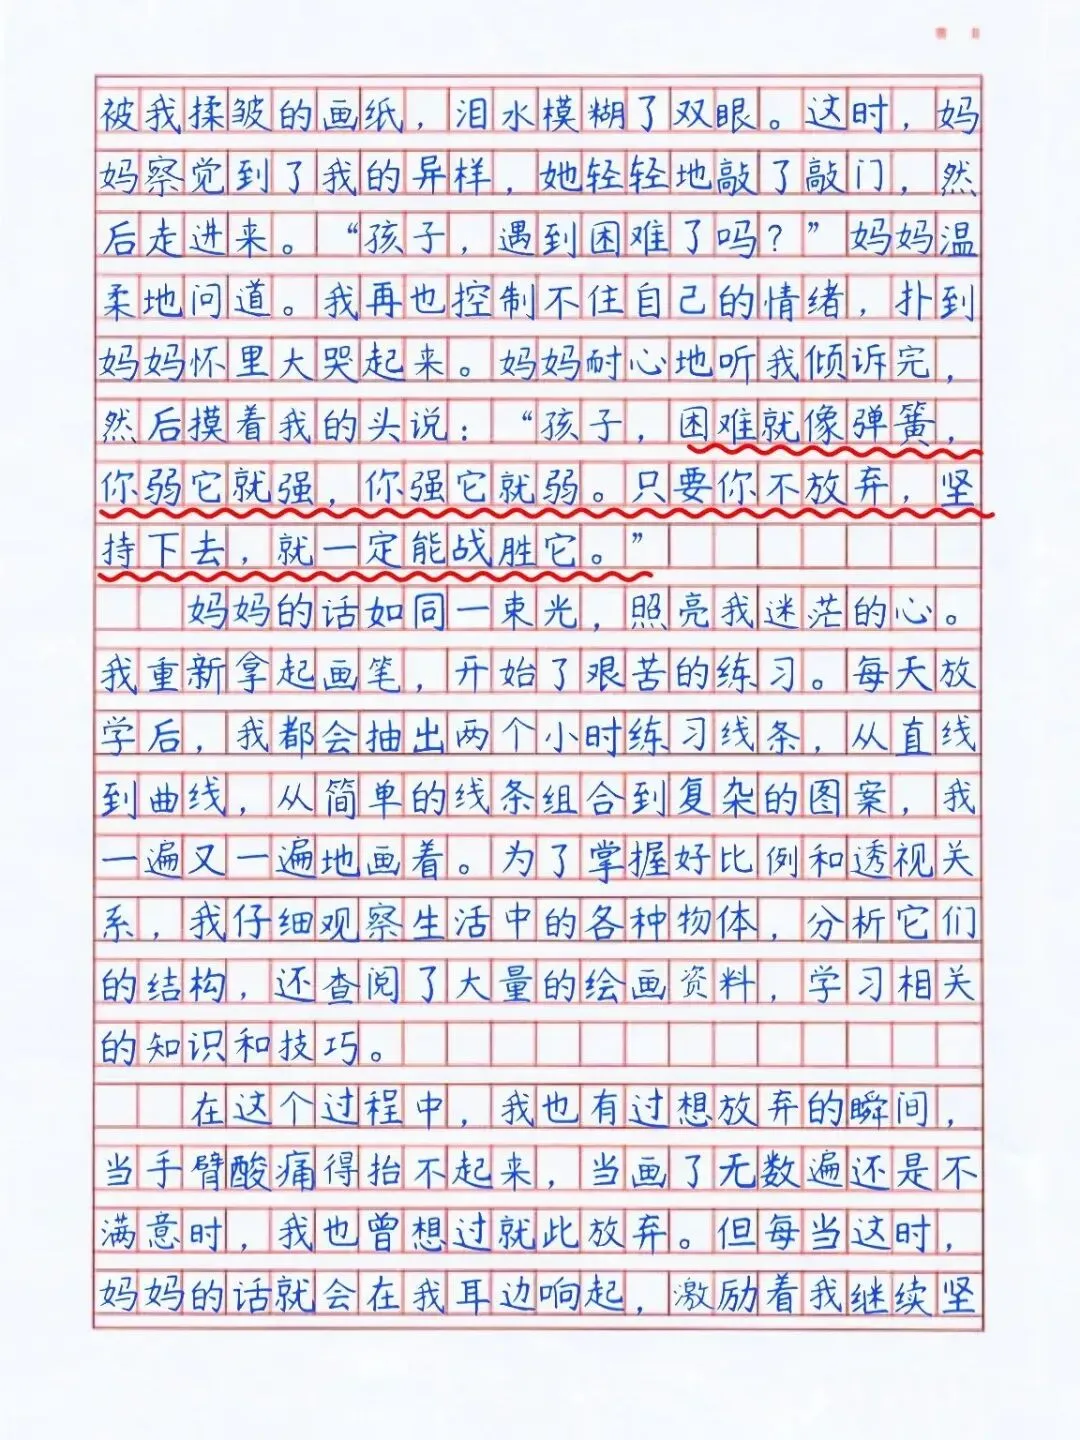 被我揉皱的画纸，泪水模糊了双眼。这时，妈
妈察觉到了我的异样，她轻轻地敲了敲门，然
后走进来。“孩子，遇到困难了吗？”妈妈温
柔地问道。我再也控制不住自己的情绪，扑到
妈妈怀里大哭起来。妈妈耐心地听我倾诉完，
然后摸着我的头说：“孩子，困难就像弹簧，
你弱它就强，你强它就弱。只要你不放弃，坚
持下去，就一定能战胜它。”
妈妈的话如同一束光，照亮我迷茫的心。
我重新拿起画笔，开始了艰苦的练习。每天放
学后，我都会抽出两个小时练习线条，从直线
到曲线，从简单的线条组合到复杂的图案，我
一遍又一遍地画着。为了掌握好比例和透视关
系，我仔细观察生活中的各种物体，分析它们
的结构，还查阅了大量的绘画资料，学习相关
的知识和技巧。
在这个过程中，我也有过想放弃的瞬间，
当手臂酸痛得抬不起来，当画了无数遍还是不
满意时，我也曾想过就此放弃。但每当这时，
妈妈的话就会在我耳边响起，激励着我继续坚